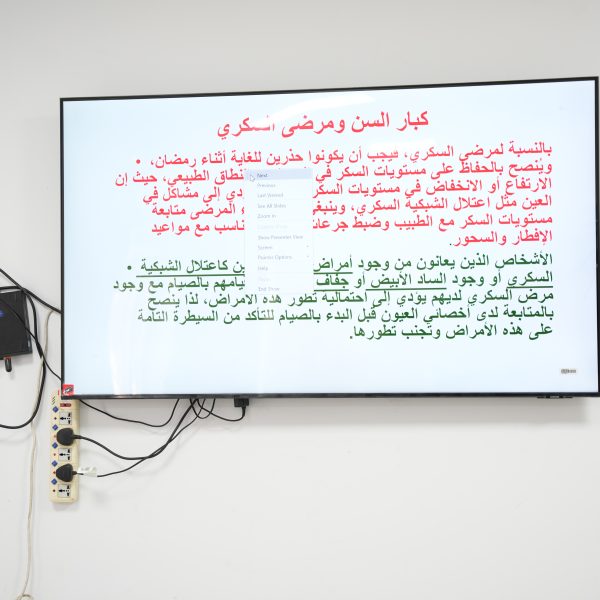 كبار السن ومرضى السكري
• بالنسبة لمرضي السكري، فيجب أن يكونوا حذرين للغاية أثناء رمضان،
ويُنصح بالحفاظ على مستويات السكر في النطاق الطبيعي، حيث إن
الارتفاع أو الانخفاض في مستويات السكر يؤدي إلى مشاكل في
العين مثل اعتلال الشبكية السكري، وينبغي المرضى متابعة
مستويات السكر مع الطبيب وضبط جرعات تتناسب مع مواعيد
الإفطار والسحور.
• الأشخاص الذين يعانون من وجود أمراض كاعتلال الشبكية
السكري أو وجود الساد الأبيض أو جفاف قيامهم بالصيام مع وجود
مرض السكري لديهم يؤدي إلى احتمالية تطور هذه الامراض، لذا يُنصح
بالمتابعة لدى أخصائي العيون قبل البدء بالصيام للتأكد من السيطرة التامة
على هذه الأمراض وتجنب تطورها.
Next
Previous
Last Viewed
See All Slides
Zoom In
Show Presenter View
Screen
Pointer Options
Help
End Show